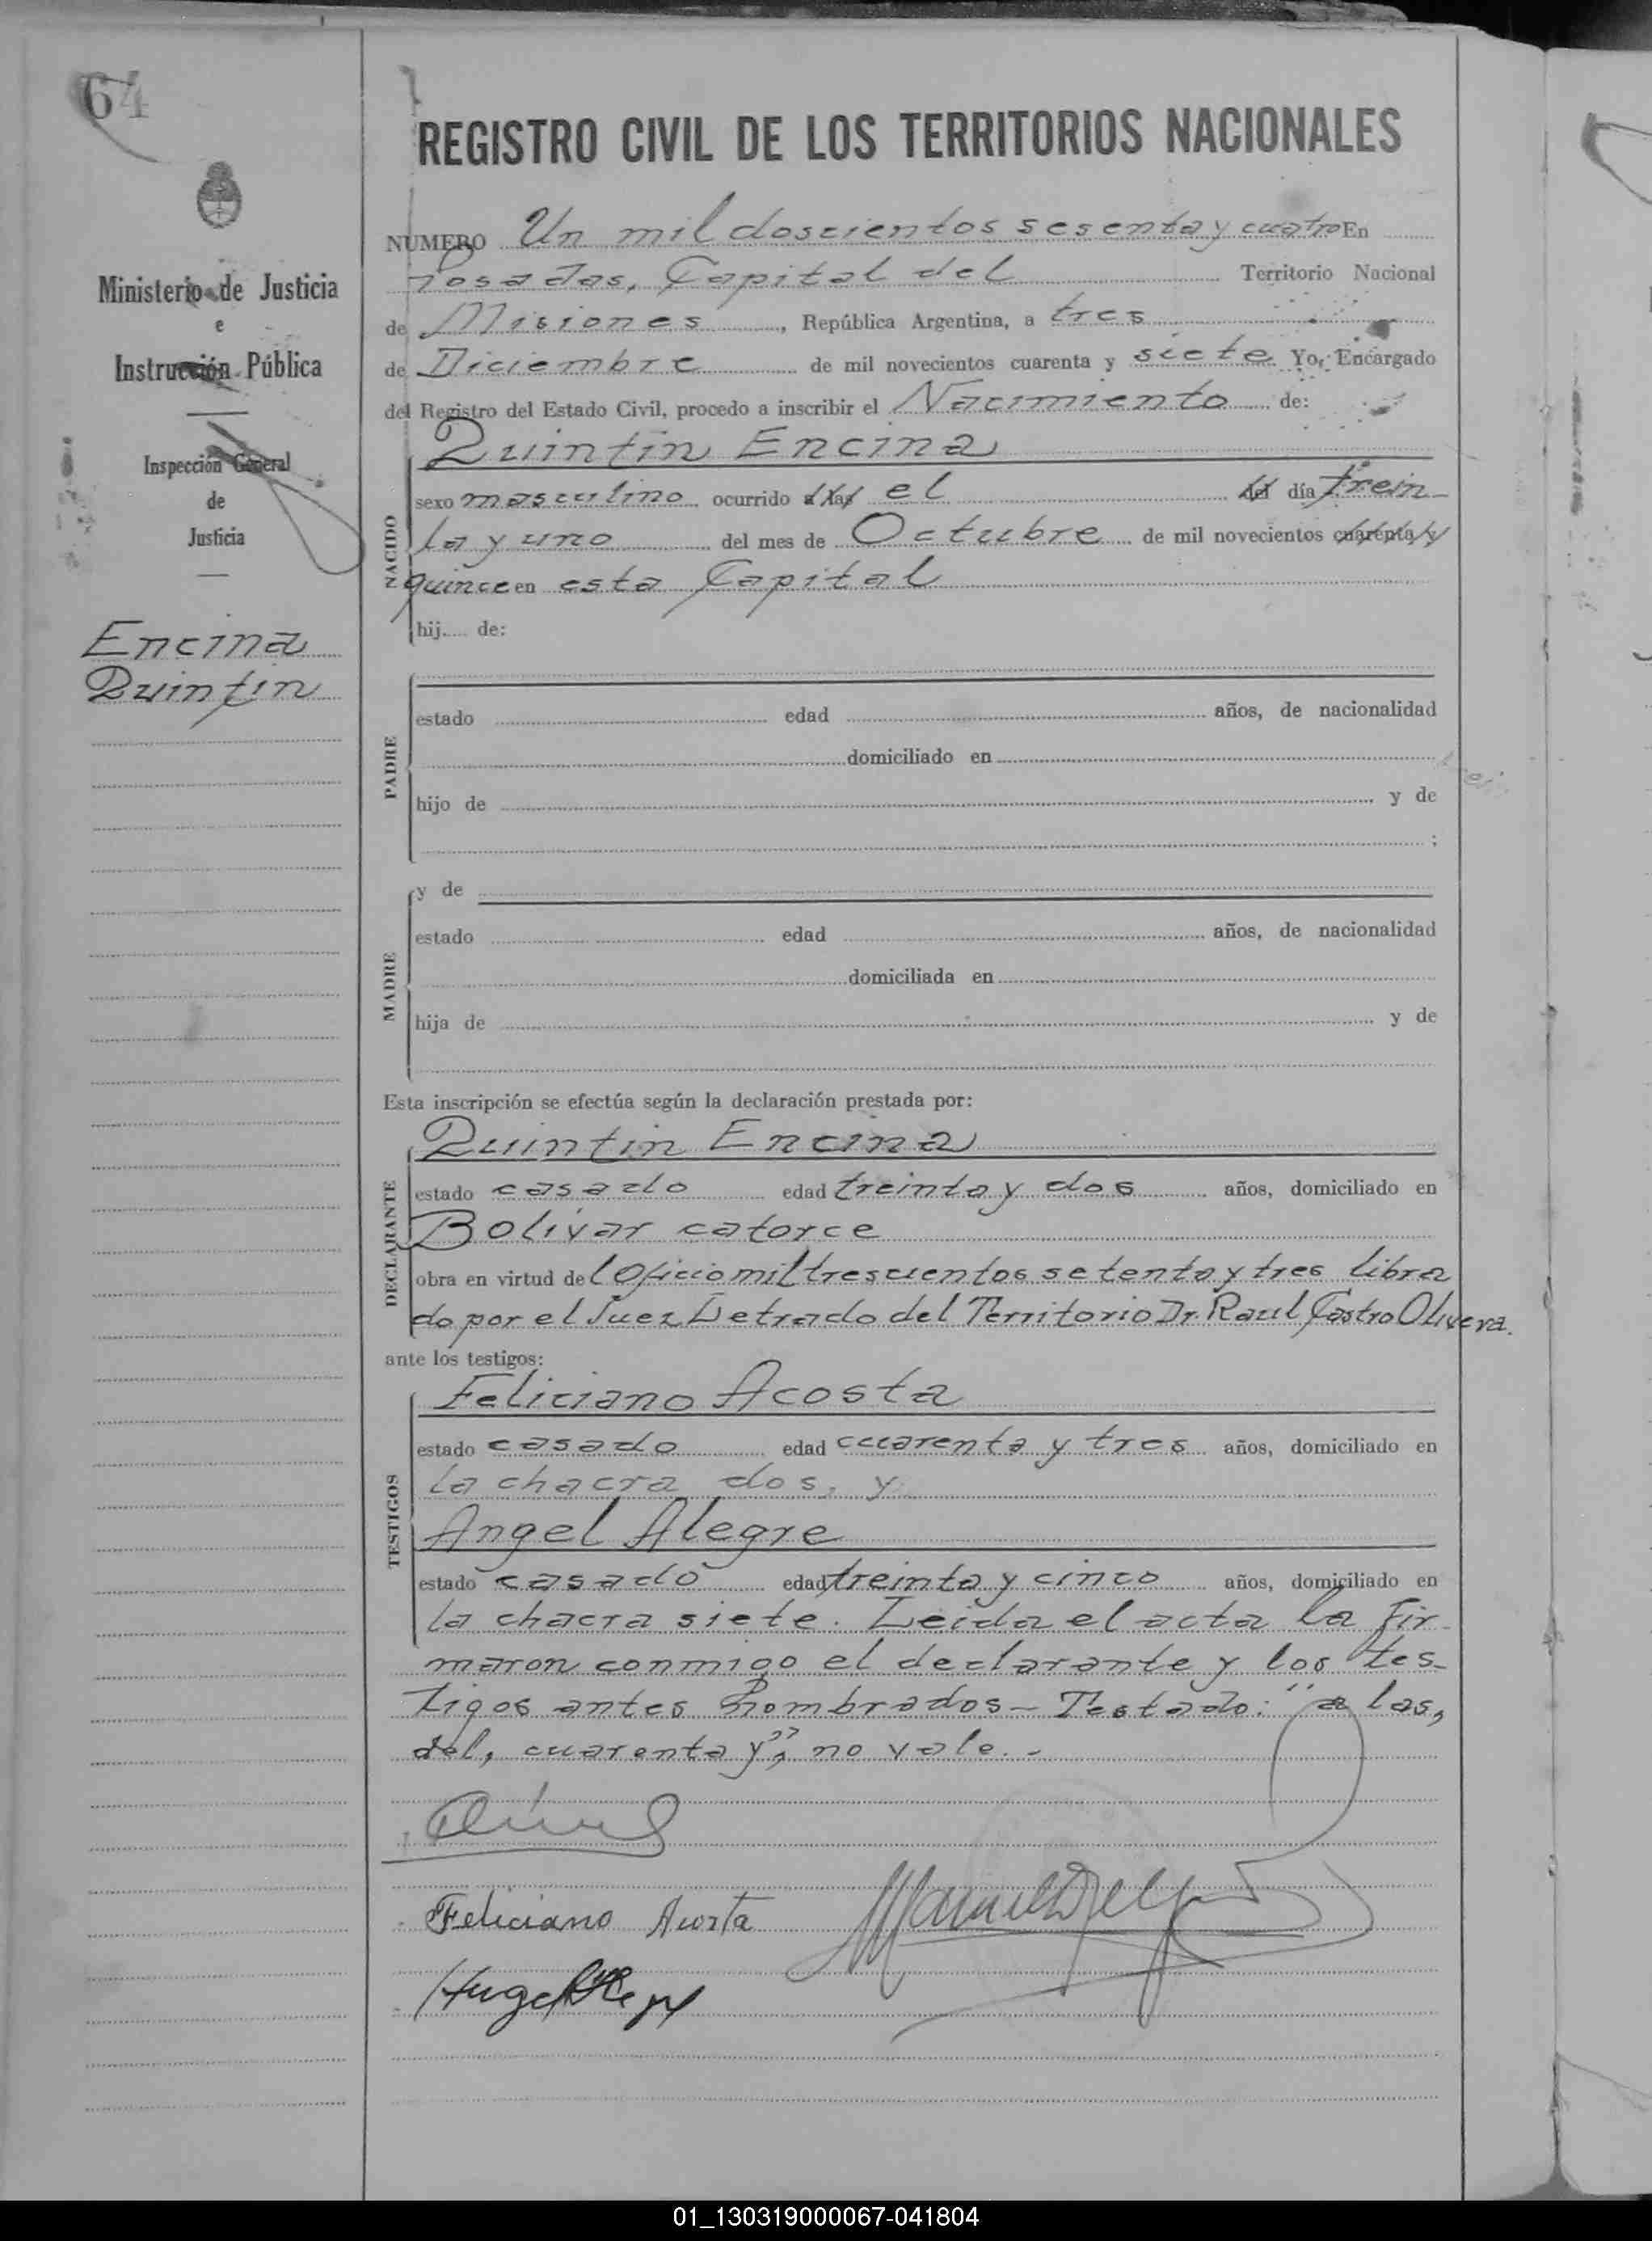 64
REGISTRO CIVIL DE LOS TERRITORIOS NACIONALES
Ministerio de Justicia
e
Instrucción Pública
Inspección General
de
Justicia
Encina
Quintin
NUMERO Un mil doscientos sesenta y cuatro En
Posadas, Capital del Territorio Nacional
de Misiones, República Argentina, a tres
de Diciembre de mil novecientos cuarenta y siete Yo, Encargado
del Registro del Estado Civil, procedo a inscribir el Nacimiento de:
NACIDO
Quintin Encina
sexo masculino ocurrido a las el del día trein-
ta y uno del mes de Octubre de mil novecientos cuarenta y
quince en esta Capital
hij.... de:
PADRE
estado edad años, de nacionalidad
domiciliado en
hijo de y de
;
MADRE
y de
estado edad años, de nacionalidad
domiciliada en
hija de y de
Esta inscripción se efectúa según la declaración prestada por:
DECLARANTE
Quintin Encina
estado casado edad treinta y dos años, domiciliado en
Bolívar catorce
obra en virtud del Oficio mil trescientos setenta y tres libra
do por el Juez Letrado del Territorio Dr. Raul Castro Olivera.
ante los testigos:
TESTIGOS
Feliciano Acosta
estado casado edad cuarenta y tres años, domiciliado en
la chacra dos, y
Angel Alegre
estado casado edad treinta y cinco años, domiciliado en
la chacra siete. Leida el acta la fir-
maron conmigo el declarante y los tes-
tigos antes nombrados - Testado: "a las,
del, cuarenta y", no vale. -
Feliciano Acosta
01_130319000067-041804